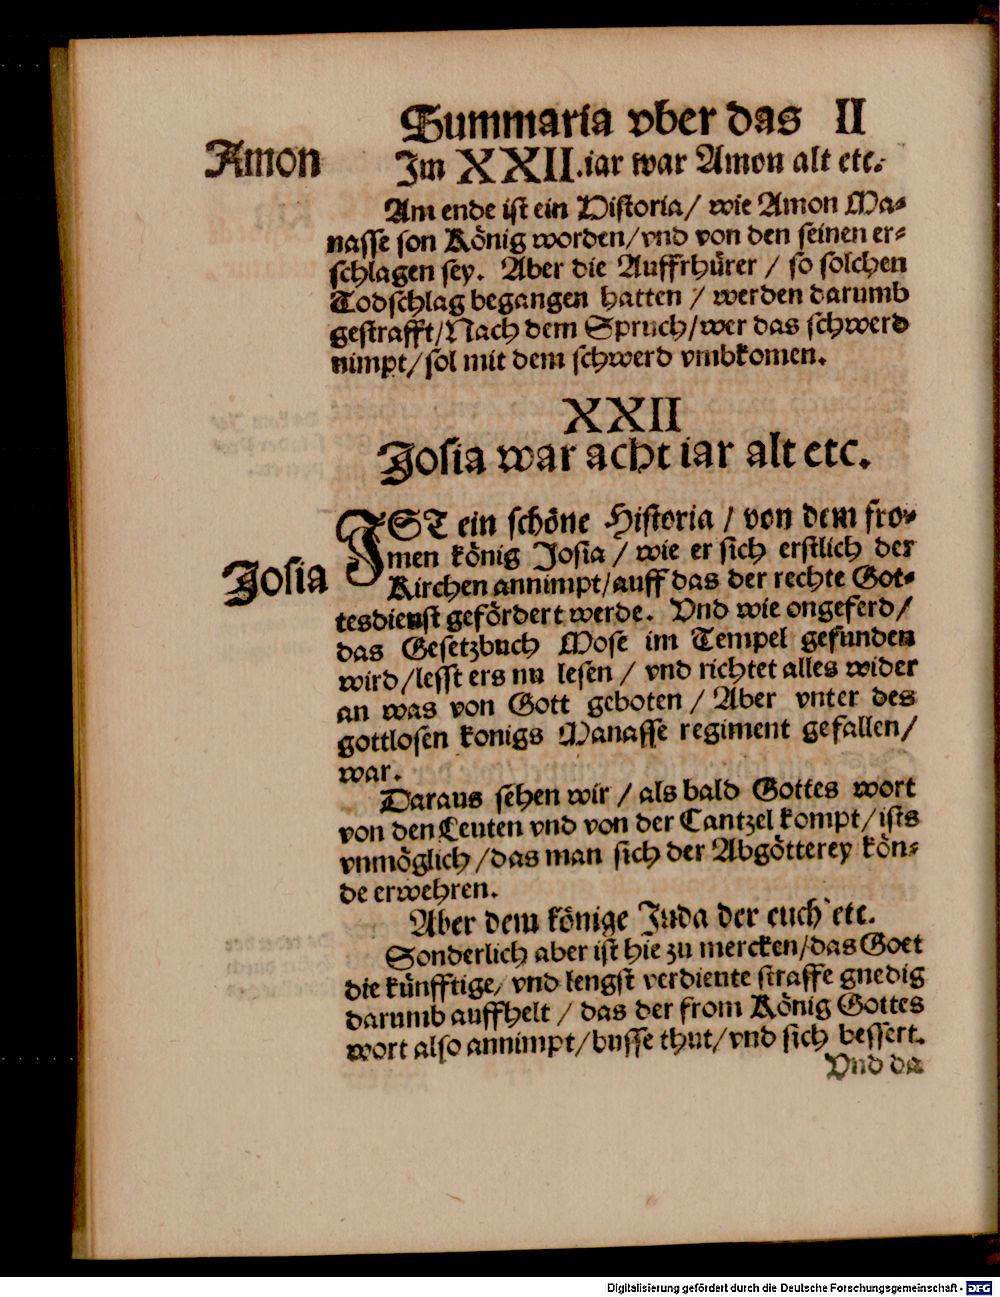 Summaria vber das II
Amon
Im XXII.iar war Amon alt etc.
Am ende ist ein Historia/ wie Amon Ma-
nasse son König worden/vnd von den seinen er-
schlagen sey. Aber die Auffrhürer / so solchen
Todschlag begangen hatten / werden darumb
gestrafft/Nach dem Spruch/wer das schwerd
nimpt/sol mit dem schwerd vmbkomen.
XXII
Josia war acht iar alt etc.
JST ein schöne Historia / von dem fro-
Josia
men könig Josia / wie er sich erstlich der
Kirchen annimpt/auff das der rechte Got-
tesdienst gefördert werde. Vnd wie ongeferd/
das Gesetzbuch Mose im Tempel gefunden
wird/lesst ers nu lesen / vnd richtet alles wider
an was von Gott geboten / Aber vnter des
gottlosen konigs Manasse regiment gefallen/
war.
Daraus sehen wir / als bald Gottes wort
von den Leuten vnd von der Cantzel kompt/ists
vnmöglich/das man sich der Abgötterey kön-
de erwehren.
Aber dem könige Juda der euch etc.
Sonderlich aber ist hie zu mercken/das Gott
die künfftige/ vnd lengst verdiente straffe gnedig
darumb auffhelt / das der from König Gottes
wort also annimpt/busse thut/vnd sich bessert.
Vnd da
Digitalisierung gefördert durch die Deutsche Forschungsgemeinschaft - DFG